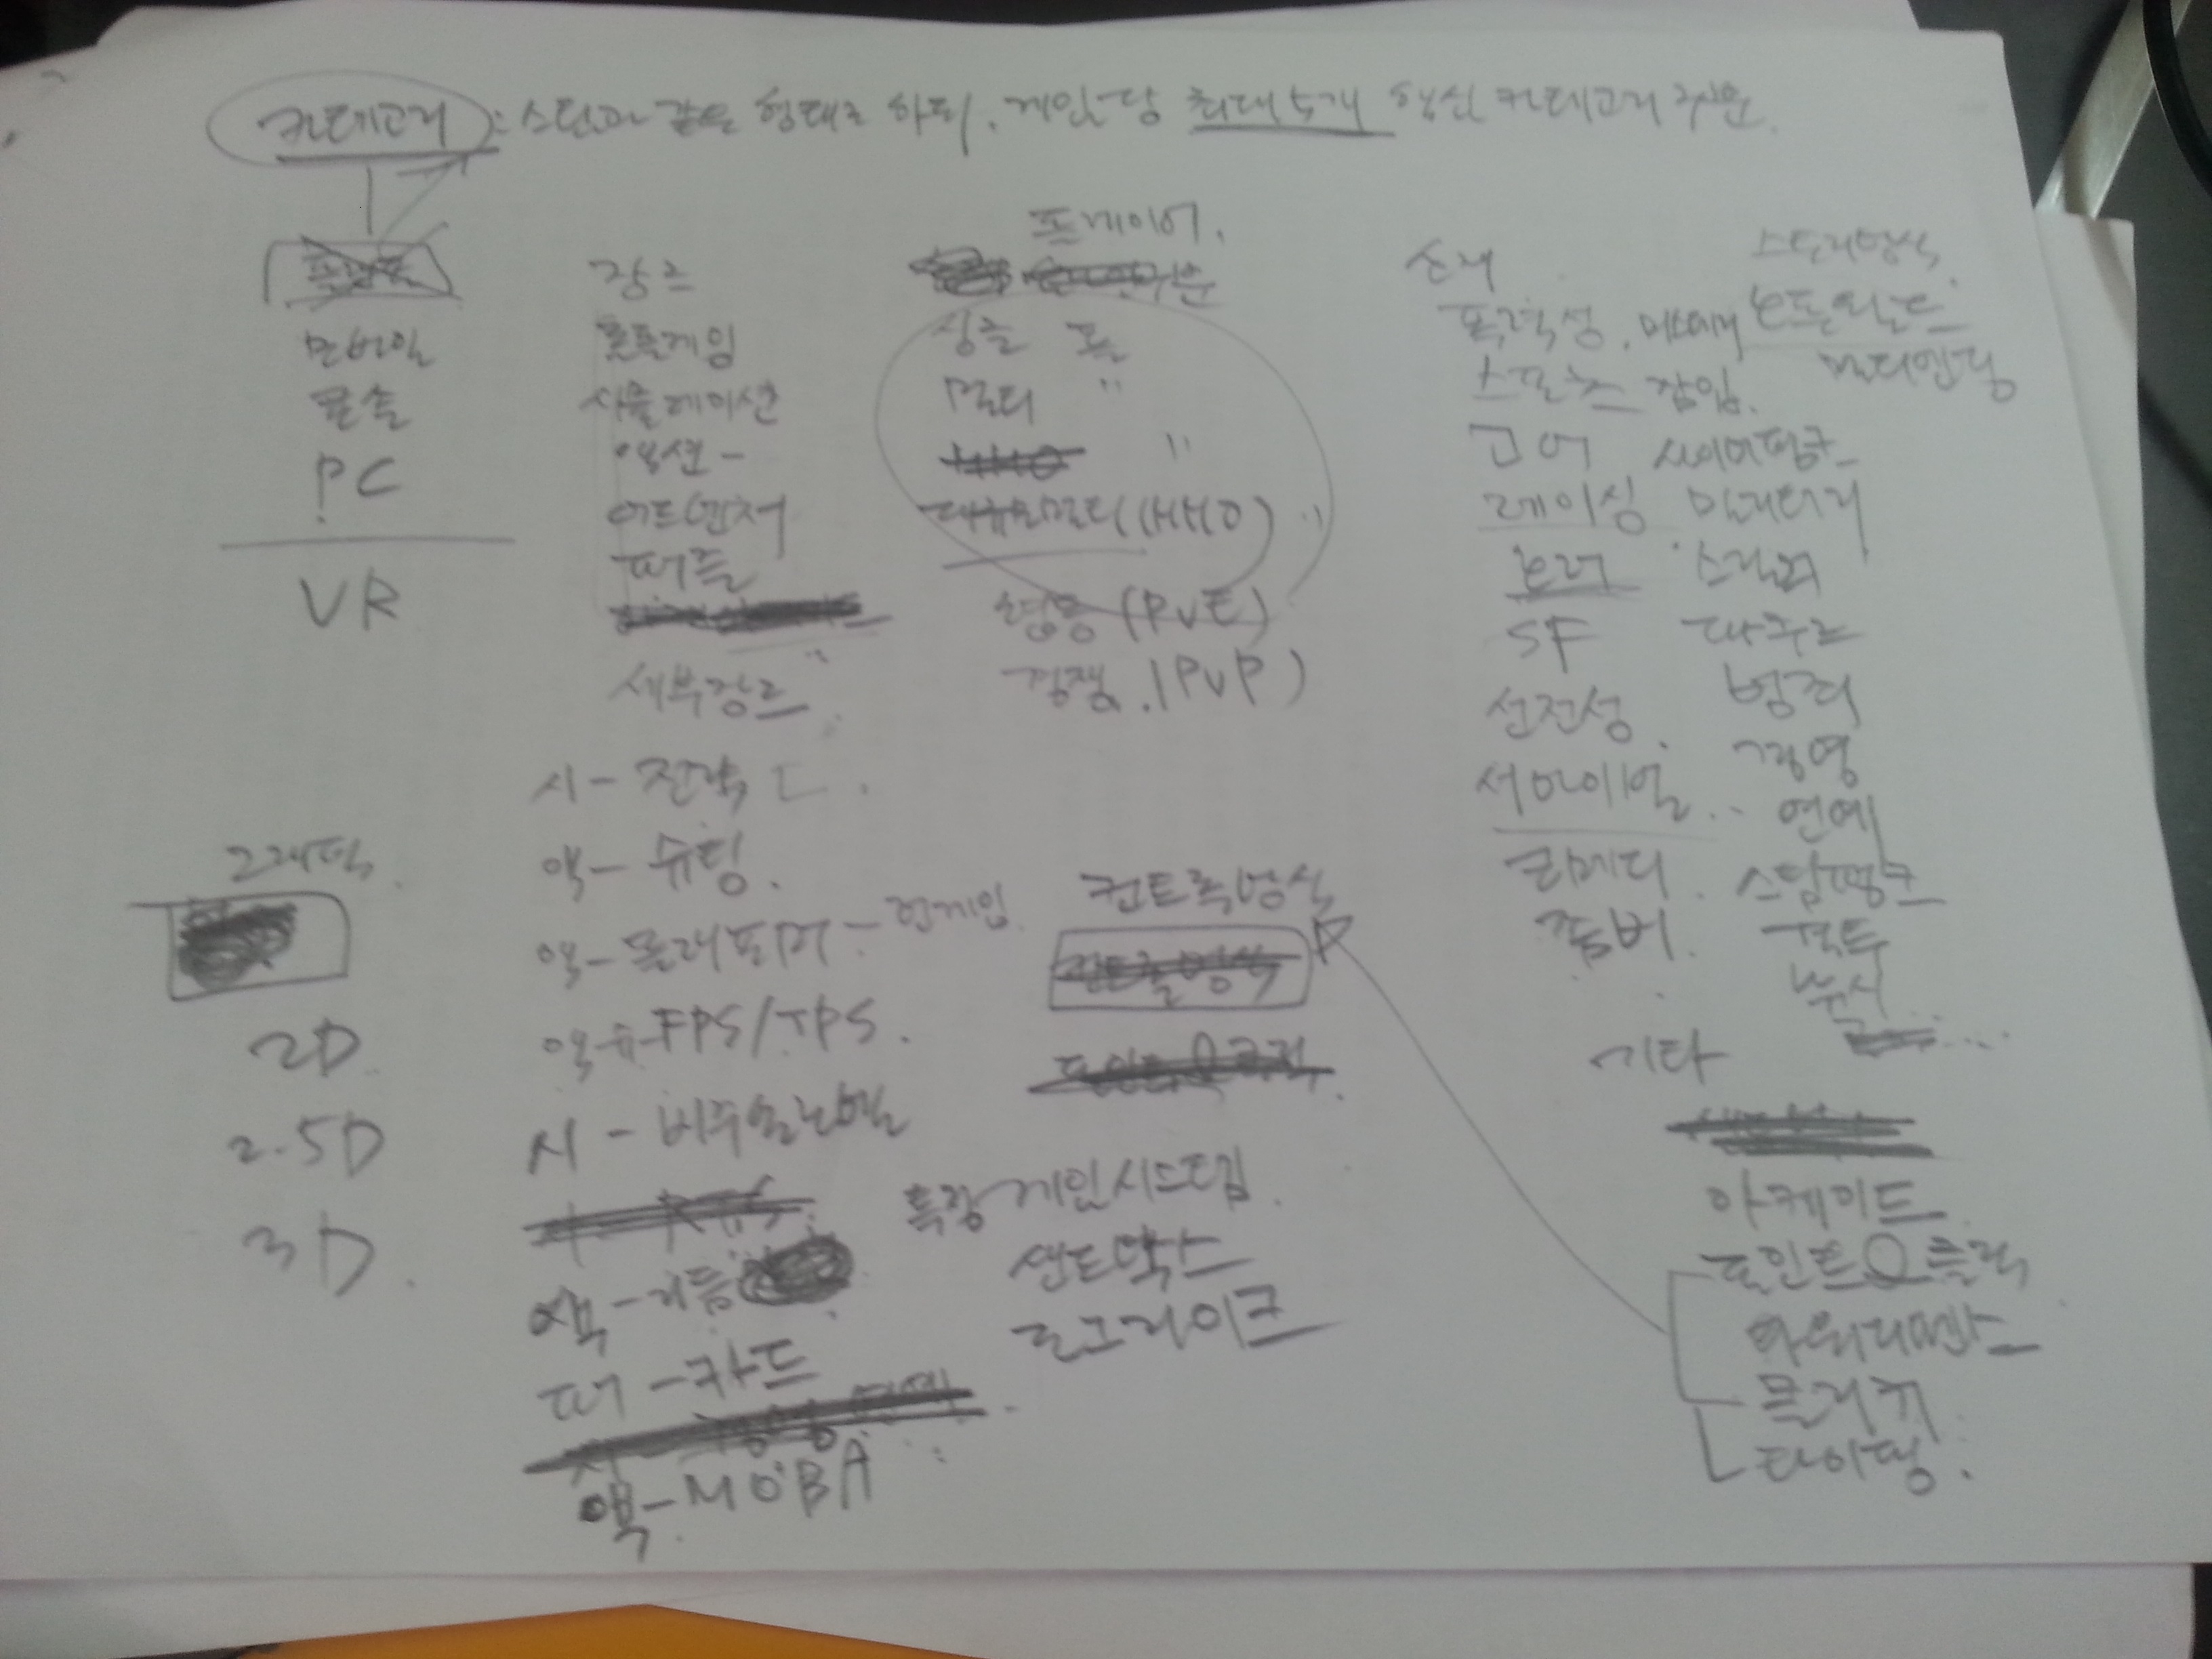 카테고리 : 스팀과 같은 형태로 하되, 게임당 최대 5개 핵심 카테고리
모바일
콘솔
PC
VR
그래픽
2D
2.5D
3D
장르
롤플레잉
시뮬레이션
액션
어드벤처
퍼즐
세부장르
시-전략
액-슈팅.
액-플래포머-런게임
액-슈-FPS/TPS.
시-비주얼노벨
액-리듬
퍼-카드
액-MOBA
플레이어.
싱글 플
멀티 "
MMO "
대규모멀티(MMO) "
협동 (PvE)
경쟁. (PvP)
컨트롤방식
컨트롤방식
포인트&클릭
특징게임시스템
샌드박스
로그라이크
소재
폭력성.
스포츠
고어
레이싱
호러
SF
선정성.
서바이벌..
코메디.
좀비.
미스테리
잠입.
사이버펑크
밀리터리
스릴러
범죄
경영
연예
스팀펑크
격투
낚시
스토리방식
오픈월드
멀티엔딩
기타
아케이드
포인트&클릭
쿼터뷰
타이핑.